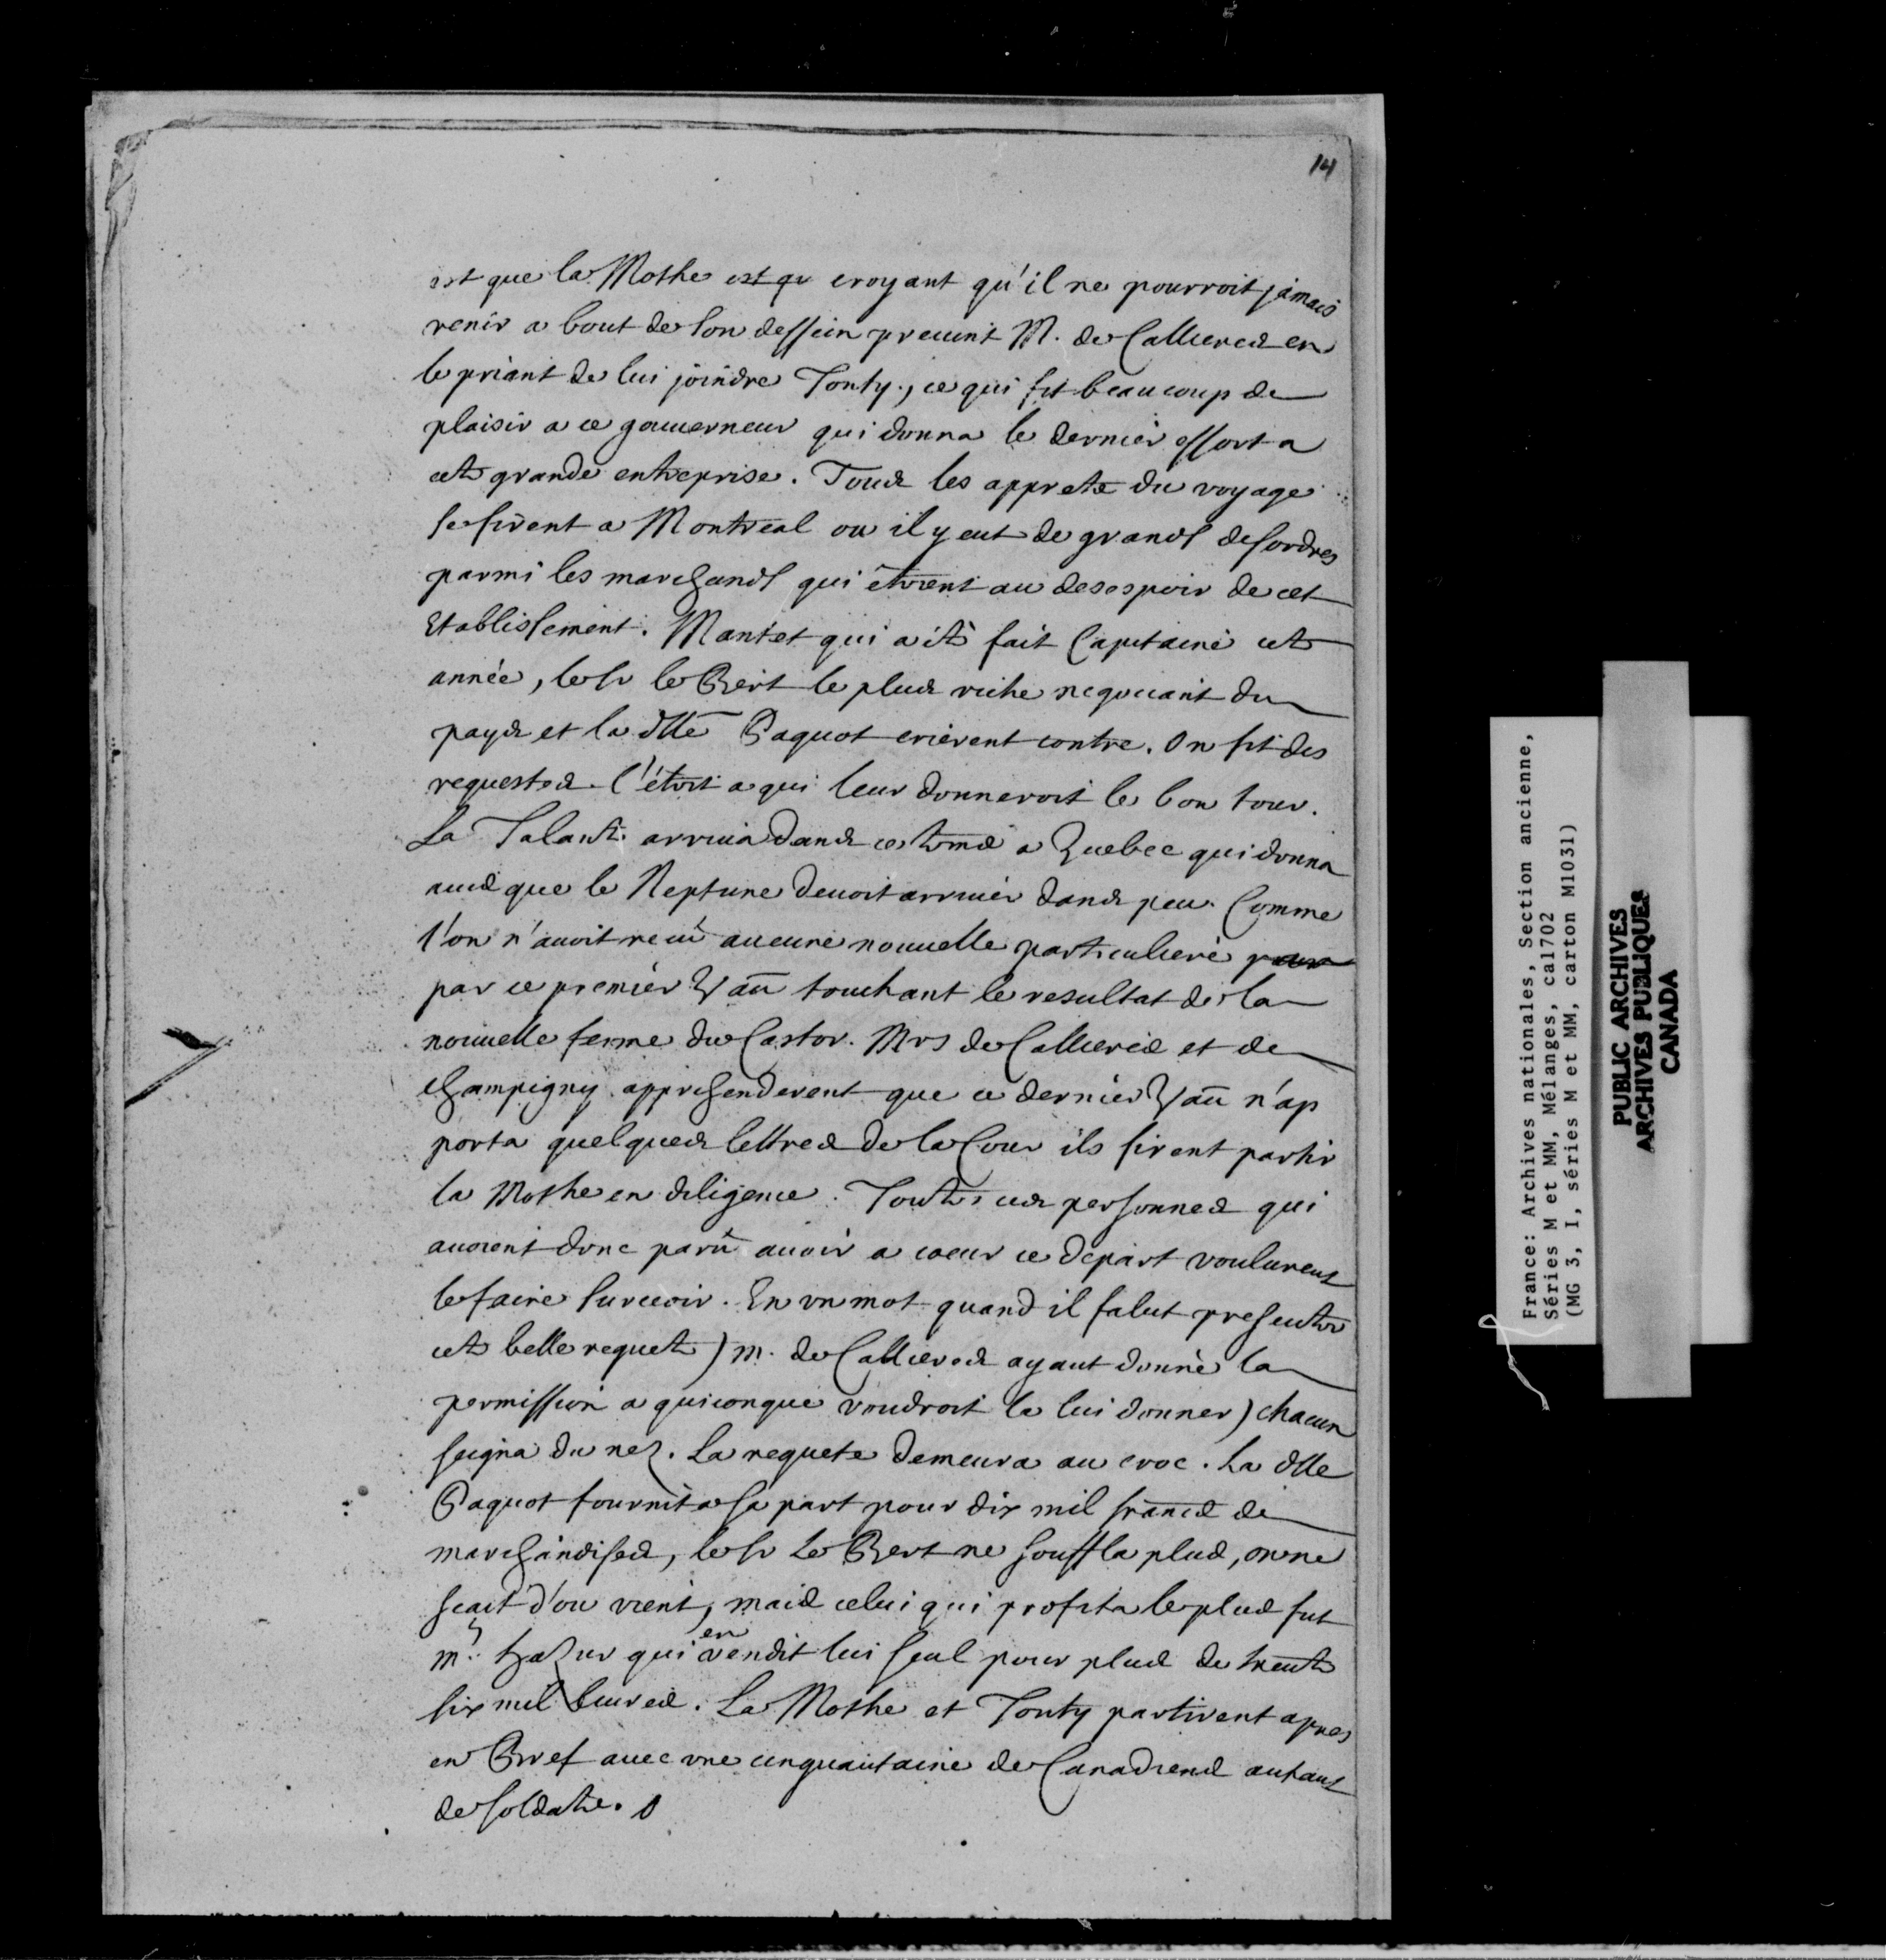 14
est que la Mothe est qu croyant qu'il ne pourroit jamais
venir a bout de son dessein prevint M. de Callieres en
le priant de lui joindre Tonty, ce qui fit beaucoup de
plaisir a ce gouverneur qui donna le dernier effort a
cete grande entreprise. Tous les apprets du voyage
se firent a Montreal ou il y eut de grands desordres
parmi les marchands qui êtoient au desespoir de cet
Etablissement. Mantet qui a été fait Capitaine cete
année, le sr le Bert le plus riche negociant du
pays et la dlle Paquot crierent contre. On fit des
requestes. C'étoit a qui leur donneroit le bon tour.
La Talante arriva dans ce tems a Quebec qui donna
avis que le Neptune devoit arriver dans peu. Comme
l'on n'avoit reçu aucune nouvelle particuliere pour
par ce premier Vau touchant le resultat de la
nouvelle ferme du Castor. Mrs de Callieres et de
Champigny apprehenderent que ce dernier Vau n'ap
porta quelques lettres de la Cour ils firent partir
la Mothe en diligence. Toutes ces personnes qui
avoient donc parû avoir a coeur ce depart voulurent
le faire surceoir. En un mot quand il falut presenter
cete belle requete) m. de Callieres ayant donné la
permission a quiconque voudroit la lui donner) chacun
seigna du nez. La requete demeura au croc. La dlle
Paquot fournit a sa part pour dix mil francs de
marchandises, le sr Le Bert ne souffla plus, on ne
scait d'ou vient, mais celui qui profita le plus fut
mr. hazur qui en vendit lui seul pour plus de trente
six mil livres. La Mothe et Tonty partirent apres
en Bref avec une cinquantaine de Canadiens autant
de soldats.
France: Archives nationales, Section ancienne,
Séries M et MM, Mélanges, ca1702
(MG 3, I, séries M et MM, carton M1031)
PUBLIC ARCHIVES
ARCHIVES PUBLIQUES
CANADA